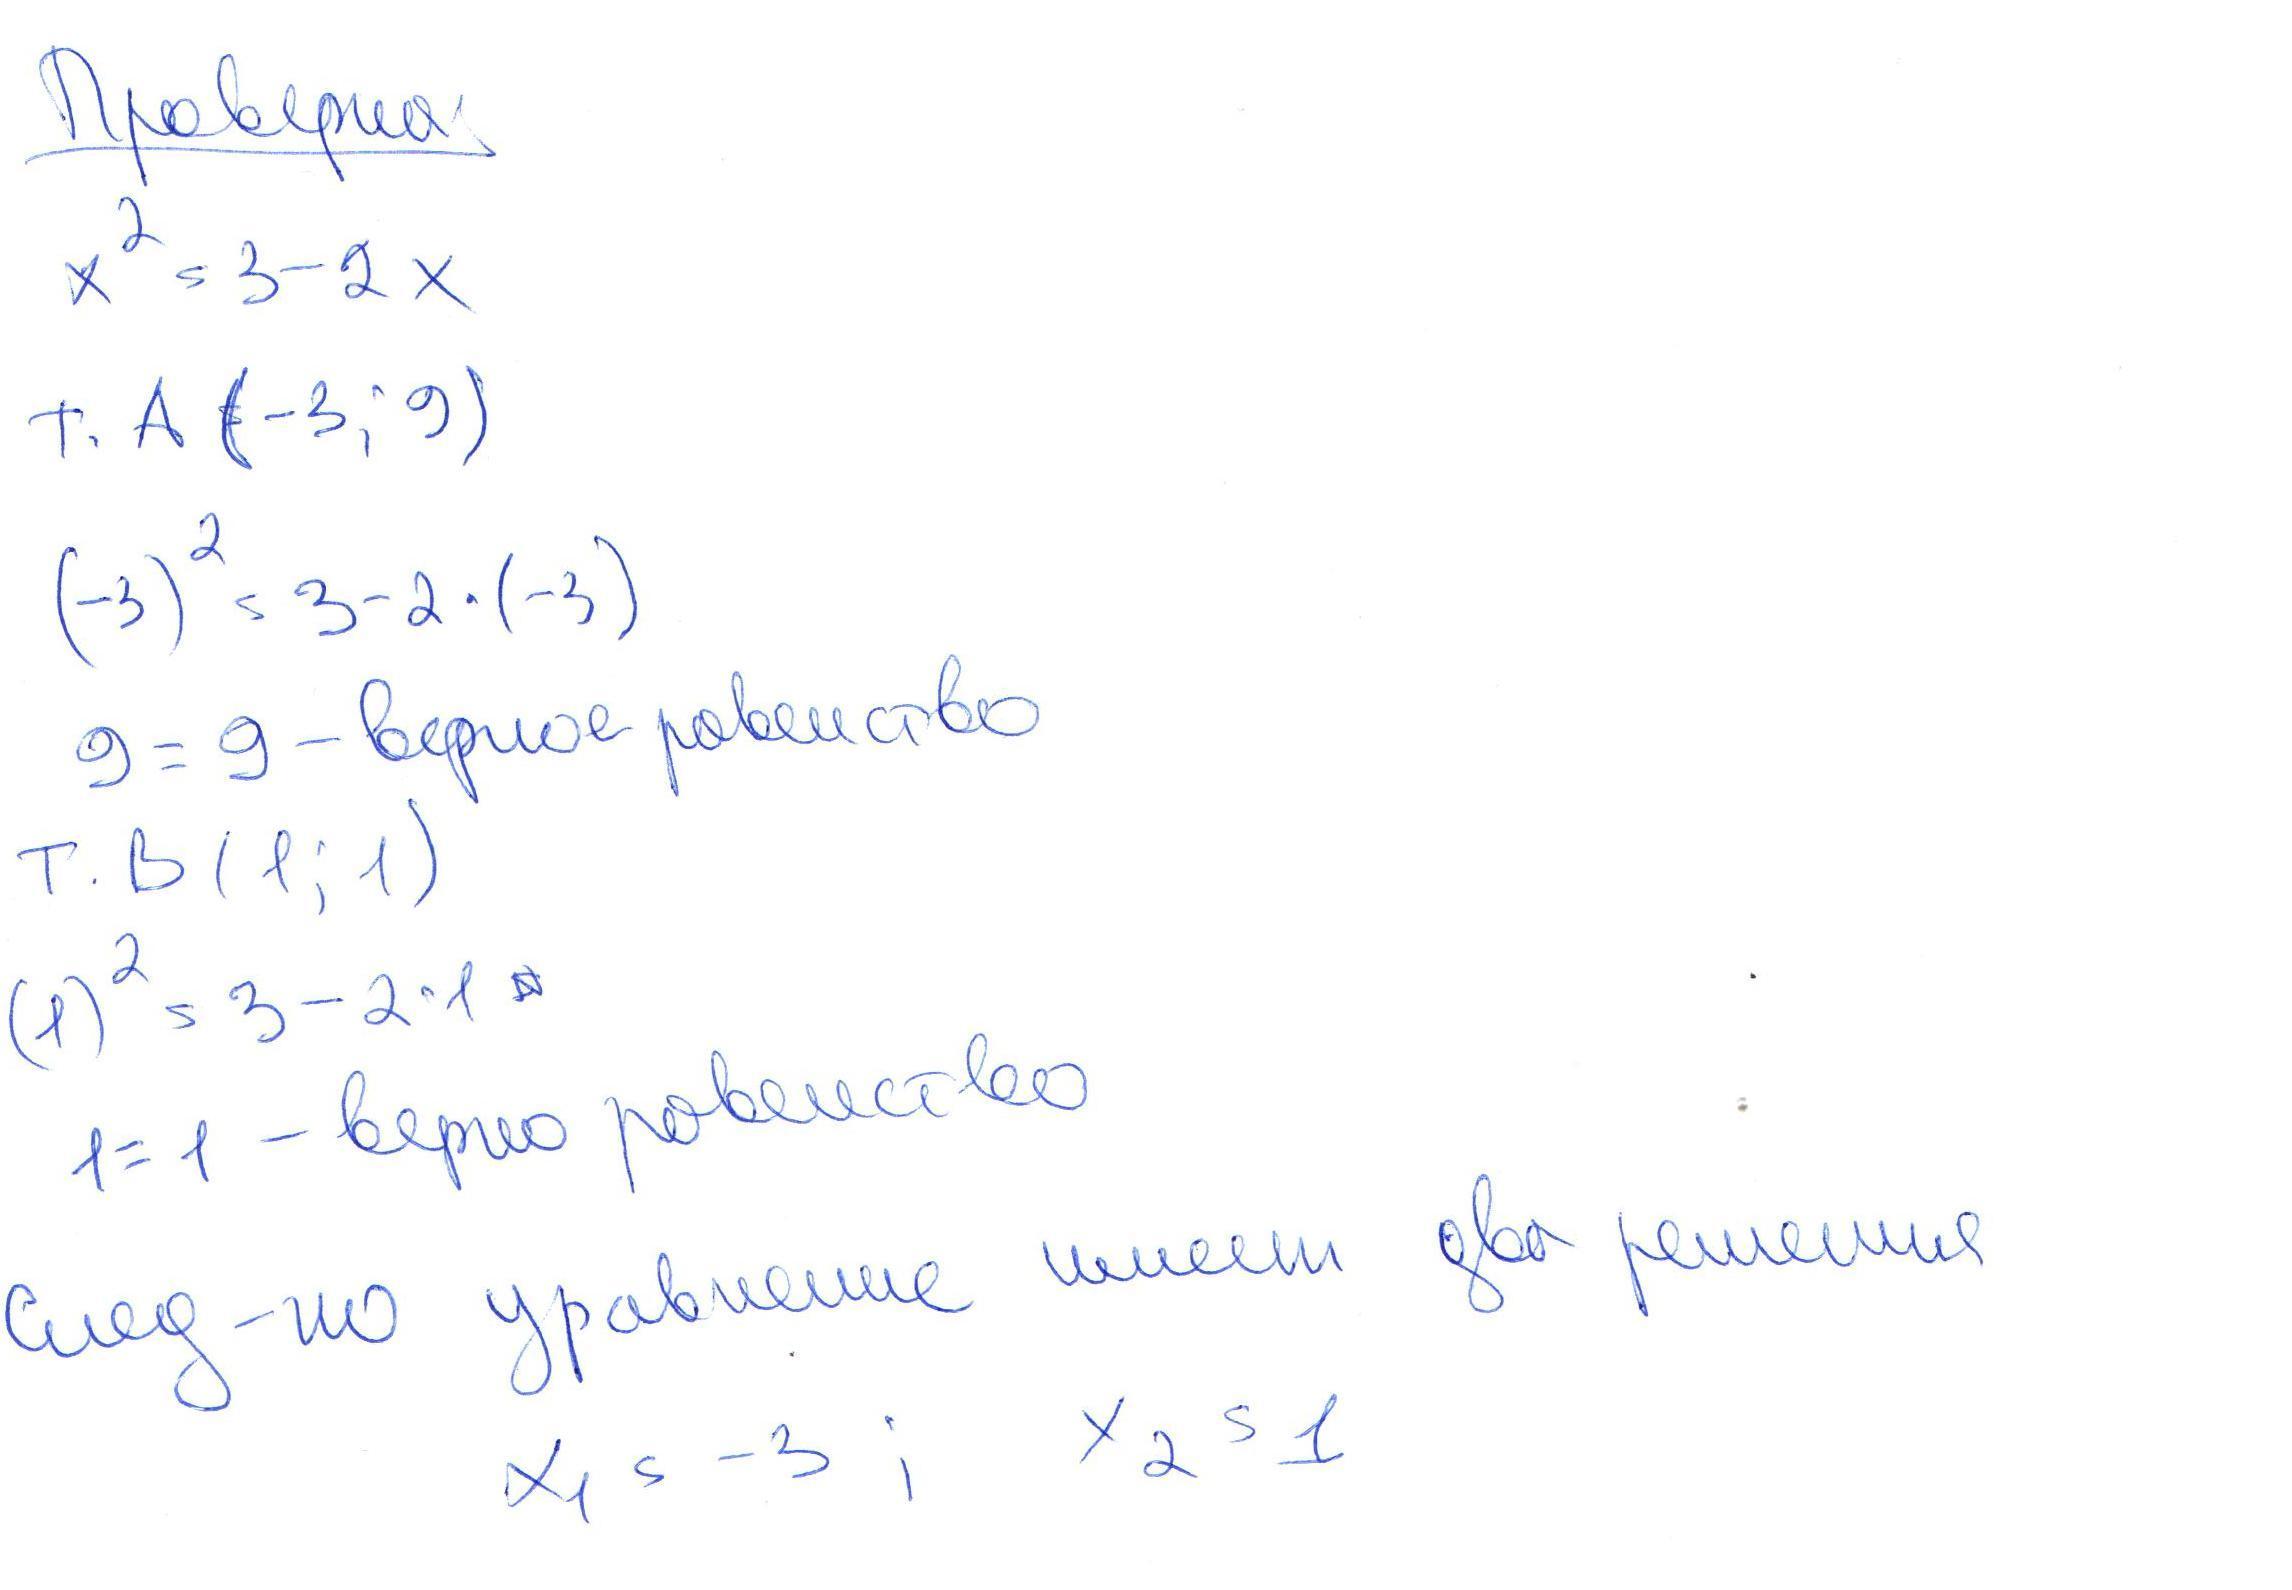 Проверка
x² = 3 - 2x
т. A (-3; 9)
(-3)² = 3 - 2 · (-3)
9 = 9 - верное равенство
т. B (1; 1)
(1)² = 3 - 2 · 1
1 = 1 - верно равенство
След-но уравнение имеет два решения
x₁ = -3; x₂ = 1